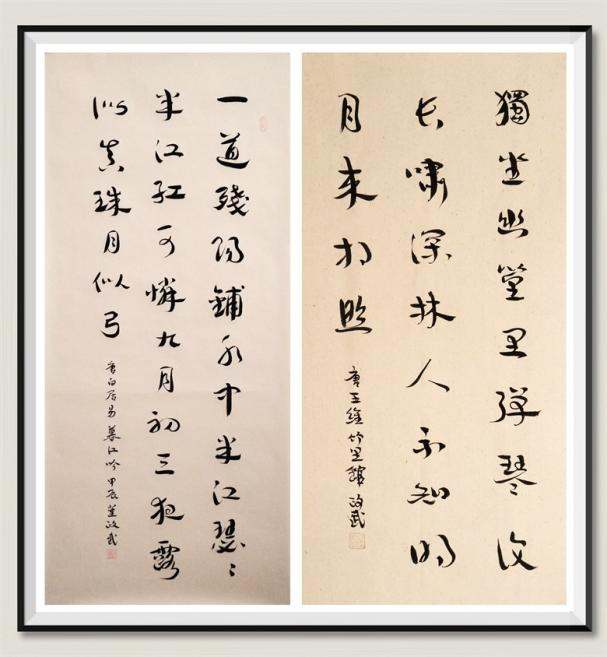 獨坐幽篁里彈琴復
長嘯深林人不知明
月來相照
唐王維竹里館 政武
一道殘陽鋪水中半江瑟〻
半江紅可憐九月初三夜露
似真珠月似弓
唐白居易暮江吟甲辰董政武